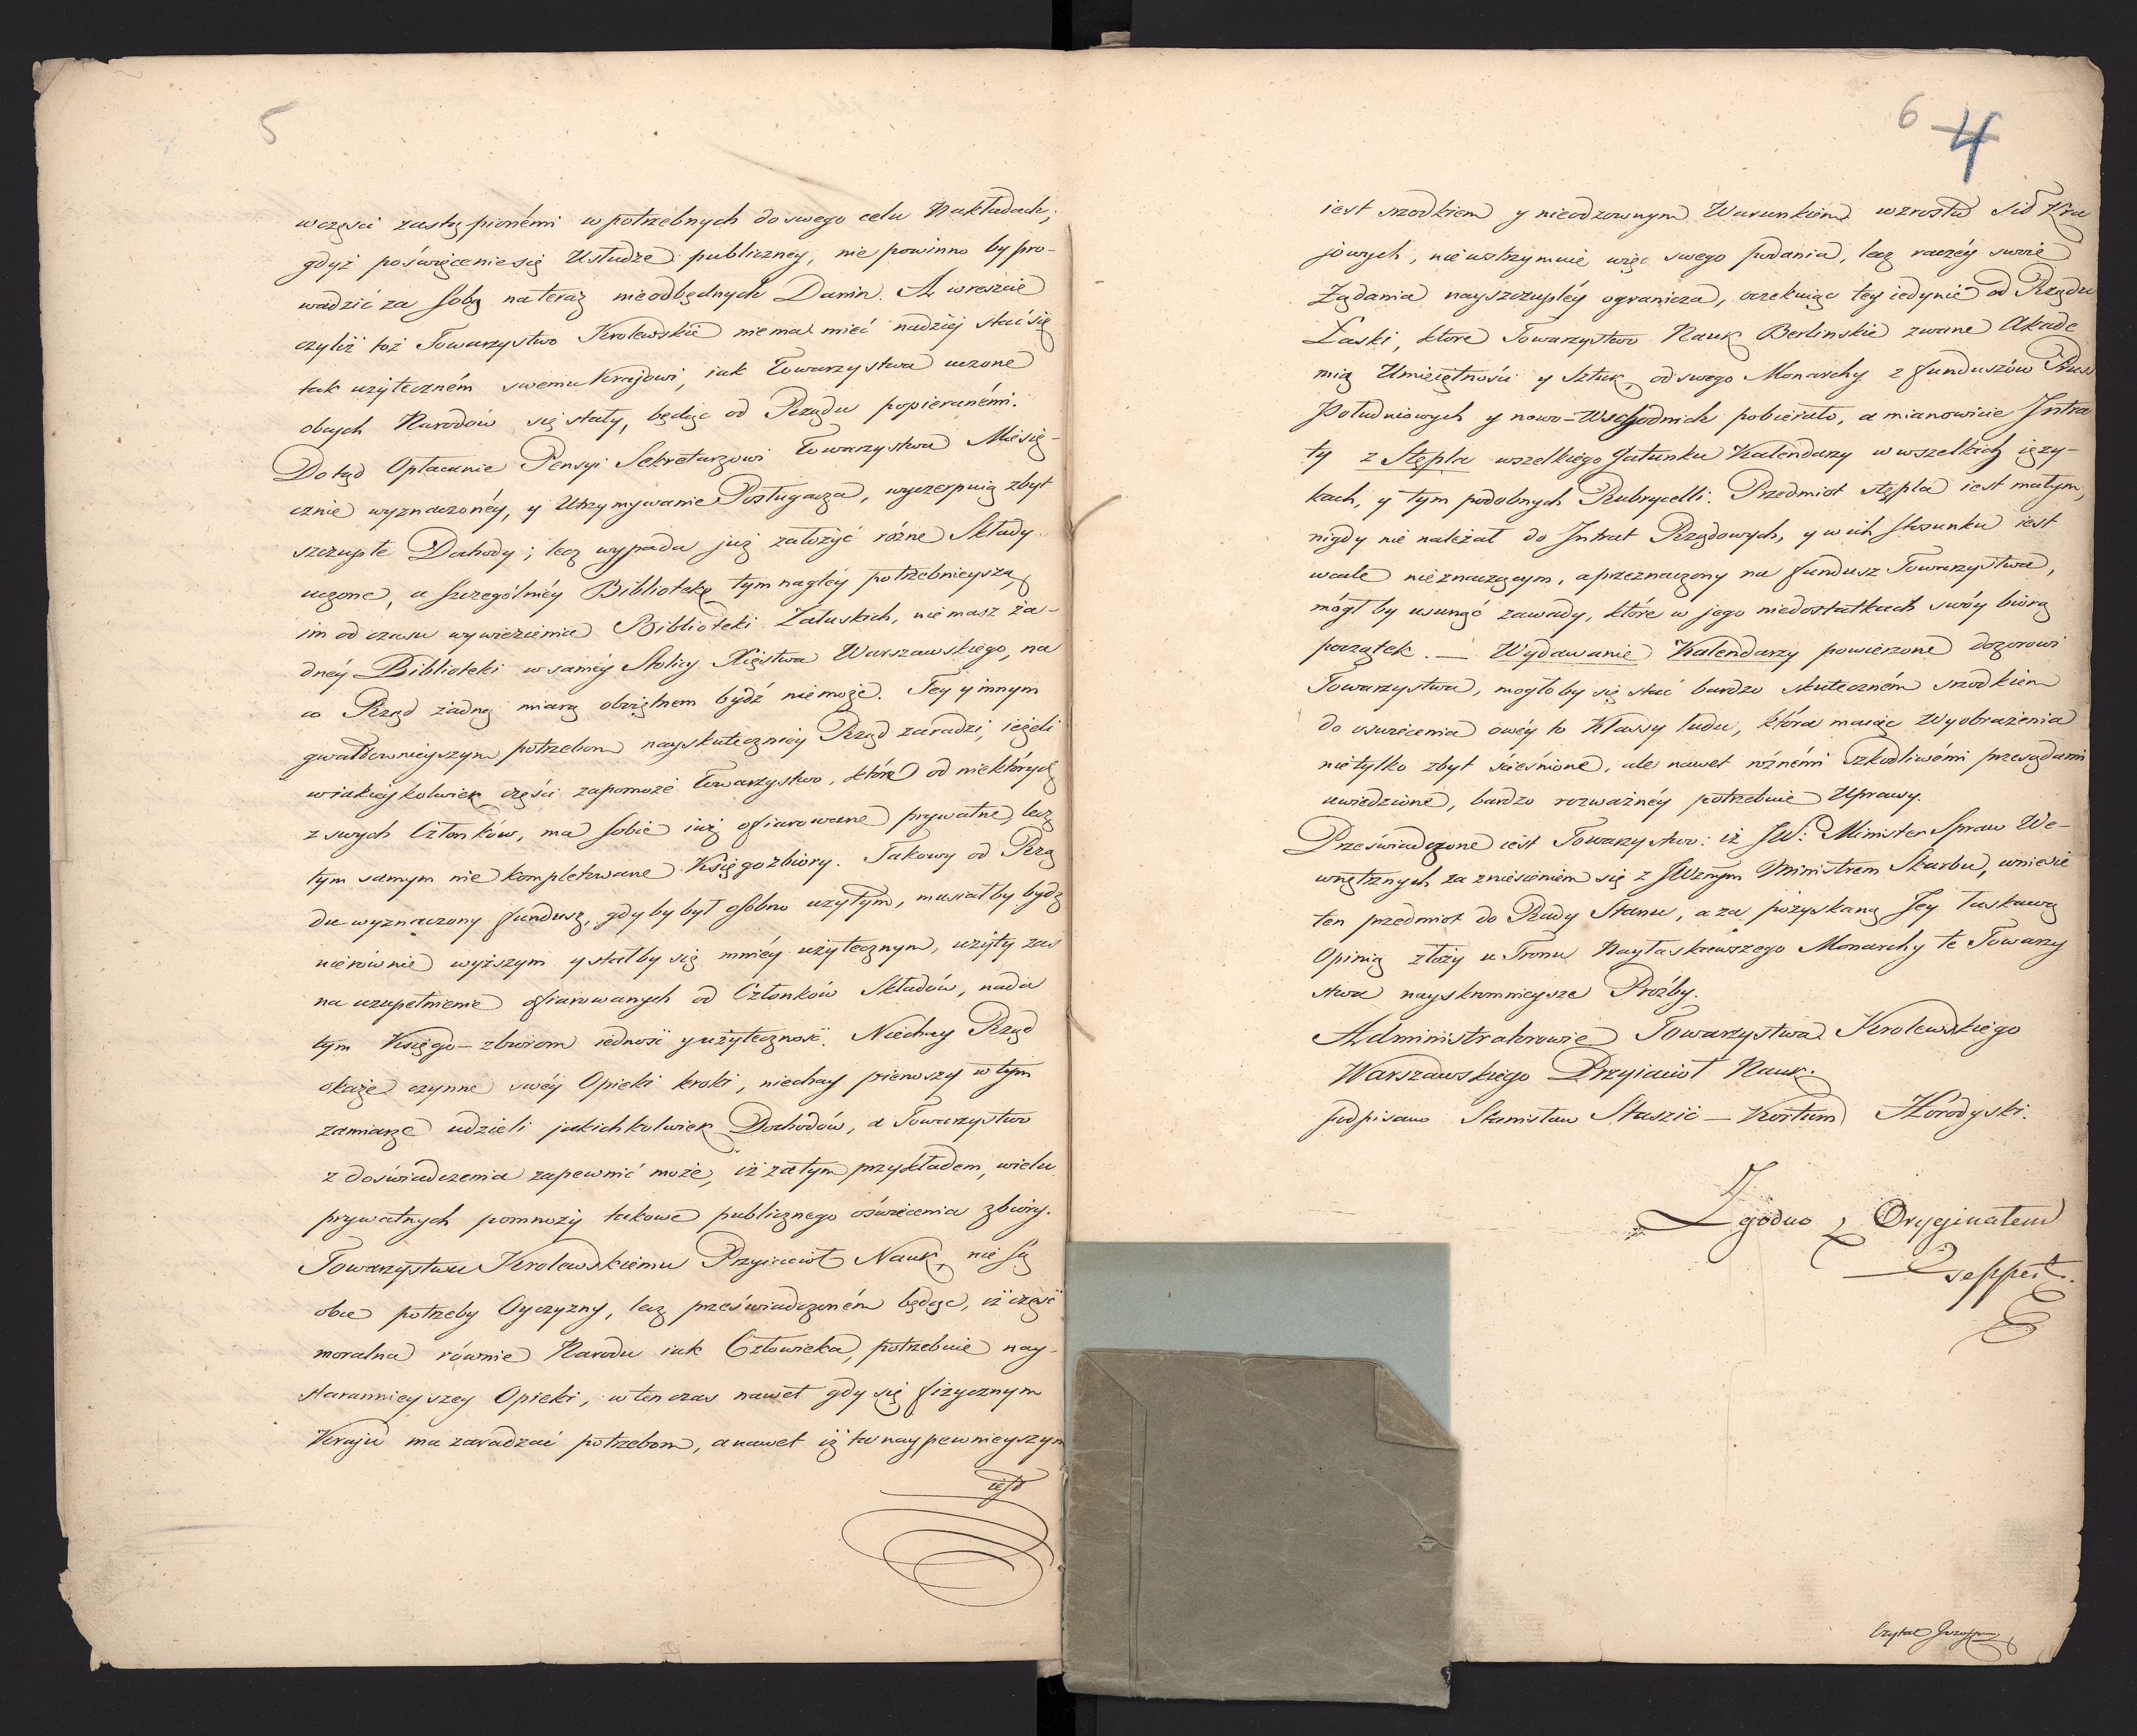 5
wczęsci zastąpionémi w potrzebnych do swego celu Nakładach;
gdyż poświęcenie się Usłudze publiczney, nie powinno by pro-
wadzić za sobą na teraz nieodbędnych Danin. A wreszcie
czyliż toż Towarzystwo Krolewskie niema mieć nadziej stać się
tak użyteczném swemu Krajowi, iak Towarzystwa uczone
obcych Narodów się stały, będąc od Rządu popieranémi.
Dotąd Opłacanie Pensyi Sekretarzowi Towarzystwa Miesię-
cznie wyznaczonéy, y Utrzymywanie Posługacza, wyczerpuią zbyt
szczupłe Dochody; lecz wypada już założyć różne Składy
uczone, a szczególniéy Bibliotekę tym nagléy potrzebnieyszą,
im od czasu wywiezienia Biblioteki Załuskich, nie masz ża-
dnéy Biblioteki w saméy Stolicy Xięstwa Warszawskiego, na
co Rząd żadną miarą oboiętnem bydź niemoże. Tey y innym
gwałtownieyszym potrzebom nayskuteczniéy Rząd zaradzi, ieżeli
w iakieykolwiek części zapomoże Towarzystwo, które od niektórych
z swych Członków, ma sobie iuż ofiarowane prywatne, lecz
tym samym nie kompletowane Księgozbiory. Takowy od Rzą
du wyznaczony fundusz, gdy by był osóbno użytym, musiałby bydź
nierównie wyższym y stałby się mniéy użytecznym, użyty zas
na uzupełnienie ofiarowanych od Członków Składów, nada
tym Księgo-zbiorom iedność y użyteczność. Niechay Rząd
okaże czynne swéy Opieki kroki, niechay pierwszy w tym
zamiarze udzieli jakichkolwiek Dochodów, a Towarzystwo
z doświadczenia zapewnić może, iż zatym przykładem, wielu
prywatnych pomnoży takowe publicznego oświecenia zbiory.
Towarzystwu Krolewskiemu Przyiaciół Nauk, nie są
obce potrzeby Oyczyzny, lecz przeświadczoném będąc, iż część
moralna równie Narodu iak Człowieka, potrzebuie nay-
starannieyszey Opieki, w ten czas nawet gdy się fizycznym
Kraju ma zaradzać potrzebom, a nawet iż ta naypewnieyszym
iest
6 4
iest srodkiem y nieodzownym Warunkiem wzrostu sił Kra
jowych, nie wstrzymuie więc swego podania, lecz raczéy swoie
Żądania nayszczupléy ogranicza, oczekuiąc tey iedynie od Rządu
Łaski, które Towarzystwo Nauk Berlinskie zwane Akade
mią Umieiętności y Sztuk, od swego Monarchy z funduszów Pruss
Południowych y nowo-Wschodnich pobierało, a mianowicie Intra
ty z Stępla wszelkiego Gatunku Kalendarzy w wszelkich ięzy-
kach, y tym podobnych Rubrycelli. Przedmiot stępla iest małym,
nigdy nie należał do Intrat Rządowych, y w ich stosunku iest
wcale nieznaczącym, a przeznaczony na fundusz Towarzystwa,
mógł by usunąć zawady, które w jego niedostatkach swóy biorą
początek. — Wydawanie Kalendarzy powierzone dozorowi
Towarzystwa, mogłoby się stać bardzo skuteczném srodkiem
do oswiecenia owéy to Klassy ludu, która maiąc Wyobrażenia
nietylko zbyt ścieśnione, ale nawet róznémi szkodliwémi przesądami
uwiedzione, bardzo rozważnéy potrzebuie Uprawy.
Przeświadczone iest Towarzystwo: iż JW: Minister Spraw We-
wnętrznych za zniesieniem się z JWznym Ministrem Skarbu, wniesie
ten przedmiot do Rady Stanu, a za pozyskaną Jey łaskawą
Opinią złoży u Tronu Nayłaskawszego Monarchy te Towarzy
stwa nayskromnieysze Proźby.
Administratorowie Towarzystwa Krolewskiego
Warszawskiego Przyiaciół Nauk.
podpisano Stanisław Staszic — Kortum Horodyski.
Zgodno z Oryginałem
Czytał